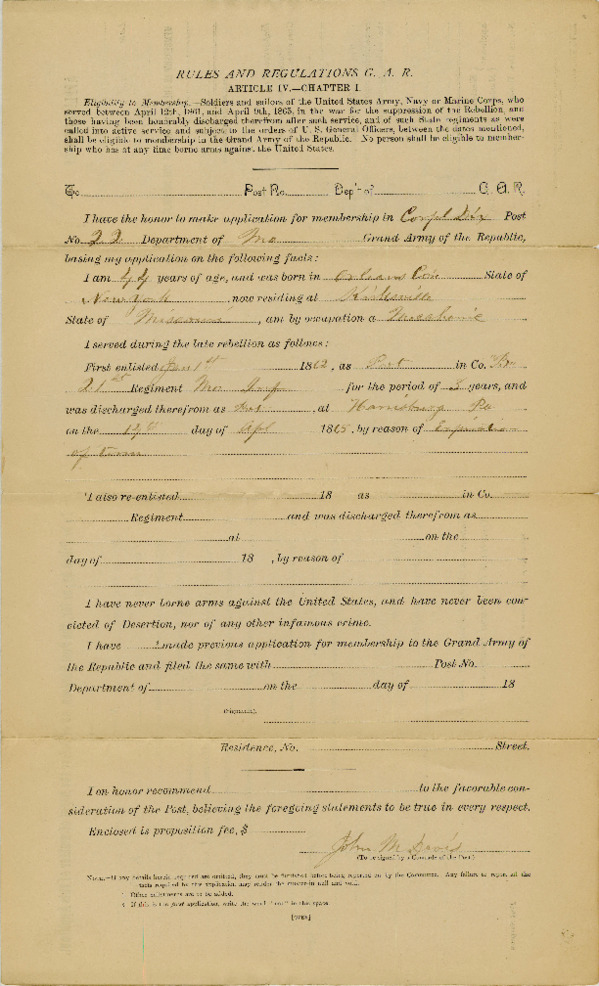 RULES AND REGULATIONS G. A. R.
ARTICLE IV.—CHAPTER I.
Eligibility to Membership.—Soldiers and sailors of the United States Army, Navy or Marine Corps, who
served between April 12th, 1861, and April 9th, 1865, in the war for the suppression of the Rebellion, and
those having been honorably discharged therefrom after such service, and of such State regiments as were
called into active service and subject to the orders of U. S. General Officers, between the dates mentioned,
shall be eligible to membership in the Grand Army of the Republic. No person shall be eligible to member-
ship who has at any time borne arms against the United States.
To Post No. Dep't of G. A. R.
I have the honor to make application for membership in Corpl Dix Post
No. 22 Department of Mo Grand Army of the Republic,
basing my application on the following facts:
I am 44 years of age, and was born in Orleans State of
New York now residing at Kirksville
State of Missouri, am by occupation a Mechanic
I served during the late rebellion as follows:
First enlisted 1st 1862, as in Co.
21st Regiment Mo Inf for the period of 3 years, and
was discharged therefrom as at Harrisburg Pa
on the 12th day of Apl 1865, by reason of Expiration
of
I also re-enlisted 18 as in Co.
Regiment and was discharged therefrom as
at on the
day of 18 , by reason of
I have never borne arms against the United States, and have never been con-
victed of Desertion, nor of any other infamous crime.
I have made previous application for membership to the Grand Army of
the Republic and filed the same with Post No.
Department of on the day of 18
(Signature).
Residence, No. Street.
I on honor recommend to the favorable con-
sideration of the Post, believing the foregoing statements to be true in every respect.
Enclosed is proposition fee, $
John M Davis
(To be signed by a Comrade of the Post.)
NOTE.—If any details herein required are omitted, they must be furnished before being reported on by the Committee. Any failure to the
facts required by the application may render the null and void.
Other enlistments are to be added.
If this is the first application write the word in this space